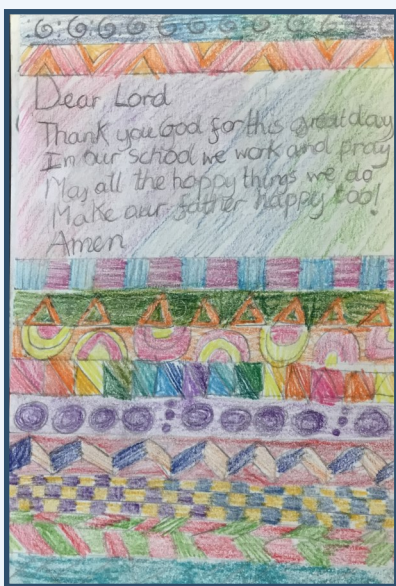 Dear Lord
Thank you God for this great day
In our school we work and pray
May all the happy things we do
Make our father happy too!
Amen